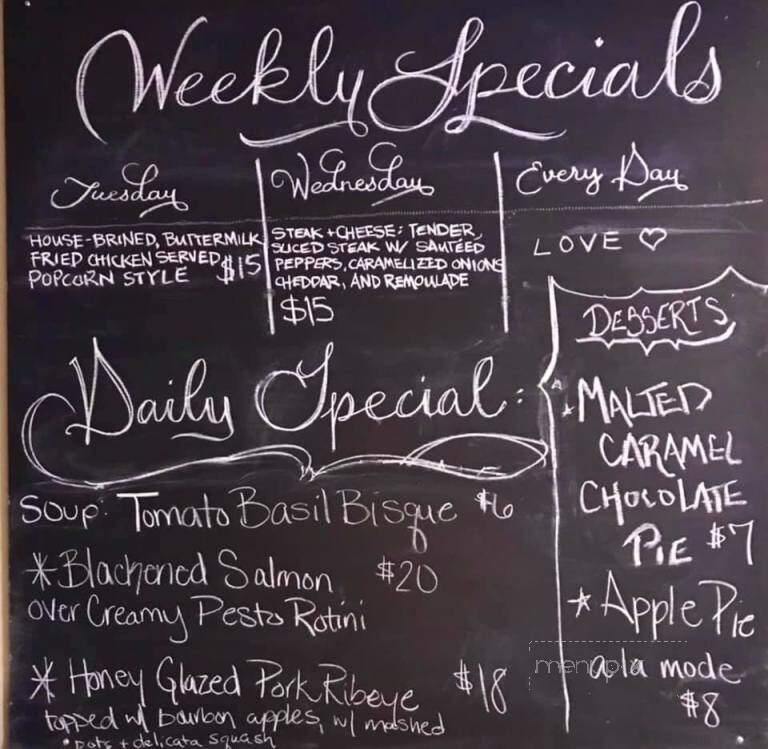 Weekly Specials
Tuesday
HOUSE-BRINED, BUTTERMILK
FRIED CHICKEN SERVED
POPCORN STYLE $15
Wednesday
STEAK + CHEESE: TENDER,
SLICED STEAK W/ SAUTEED
PEPPERS, CARAMELIZED ONIONS
CHEDDAR, AND REMOULADE
$15
Every Day
LOVE ♡
Daily Special:
SOUP: Tomato Basil Bisque $6
* Blackened Salmon $20
over Creamy Pesto Rotini
* Honey Glazed Pork Ribeye $18
topped w/ bourbon apples, w/ mashed
pots + delicata squash
DESSERTS
* MALTED
CARAMEL
CHOCOLATE
PIE $7
* Apple Pie
a la mode
$8